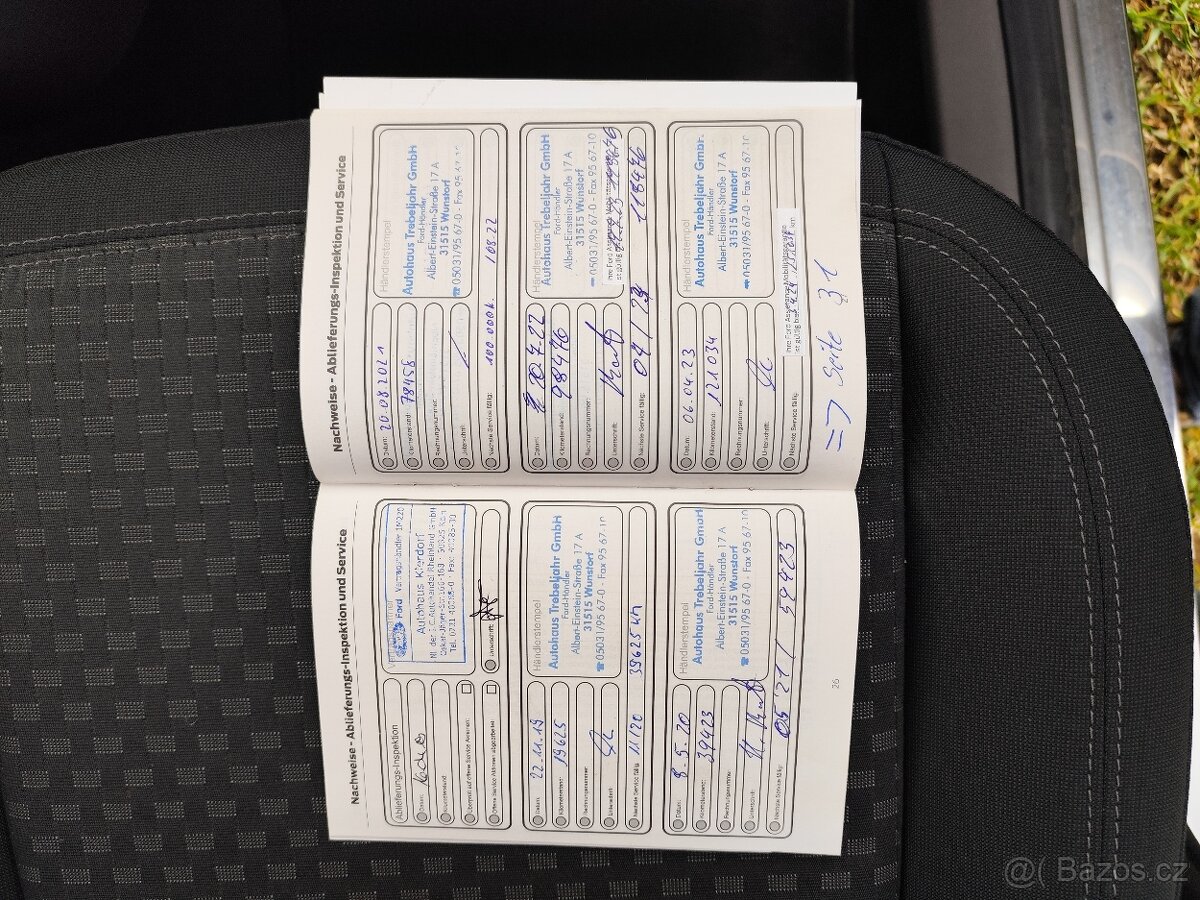 Nachweise - Ablieferungs-Inspektion und Service
Ablieferungs-Inspektion
Datum:
Kilometerstand:
Überprüft auf offene Service Aktionen:
Offene Service Aktionen abgearbeitet:
Ford Vertragshändler
Autohaus
Unterschrift:
Datum: 22.11.19
Kilometerstand: 19625
Rechnungsnummer:
Unterschrift:
Nächste Service fällig: 11/20 39625 km
Händlerstempel
Autohaus Trebeljahr GmbH
Ford-Händler
Albert-Einstein-Straße 17 A
31515 Wunstorf
☎ 05031/95 67-0 - Fax 95 67-10
Datum: 8.5.20
Kilometerstand: 39423
Rechnungsnummer:
Unterschrift:
Nächste Service fällig: 05/21 / 59423
Händlerstempel
Autohaus Trebeljahr GmbH
Ford-Händler
Albert-Einstein-Straße 17 A
31515 Wunstorf
☎ 05031/95 67-0 - Fax 95 67-10
26
Nachweise - Ablieferungs-Inspektion und Service
Datum: 20.08.2021
Kilometerstand: 78458
Rechnungsnummer:
Unterschrift:
Nächste Service fällig: 100 000k. 108.22
Händlerstempel
Autohaus Trebeljahr GmbH
Ford-Händler
Albert-Einstein-Straße 17 A
31515 Wunstorf
☎ 05031/95 67-0 - Fax 95 67-10
Datum: 20.7.22
Kilometerstand: 98476
Rechnungsnummer:
Unterschrift:
Nächste Service fällig: 118476
Händlerstempel
Autohaus Trebeljahr GmbH
Ford-Händler
Albert-Einstein-Straße 17 A
31515 Wunstorf
05031/95 67-0 - Fax 95 67-10
Datum: 06.04.23
Kilometerstand: 121034
Rechnungsnummer:
Unterschrift:
Nächste Service fällig:
Händlerstempel
Autohaus Trebeljahr GmbH
Ford-Händler
Albert-Einstein-Straße 17 A
31515 Wunstorf
05031/95 67-0 - Fax 95 67-10
=> Seite 31
@( Bazos.cz